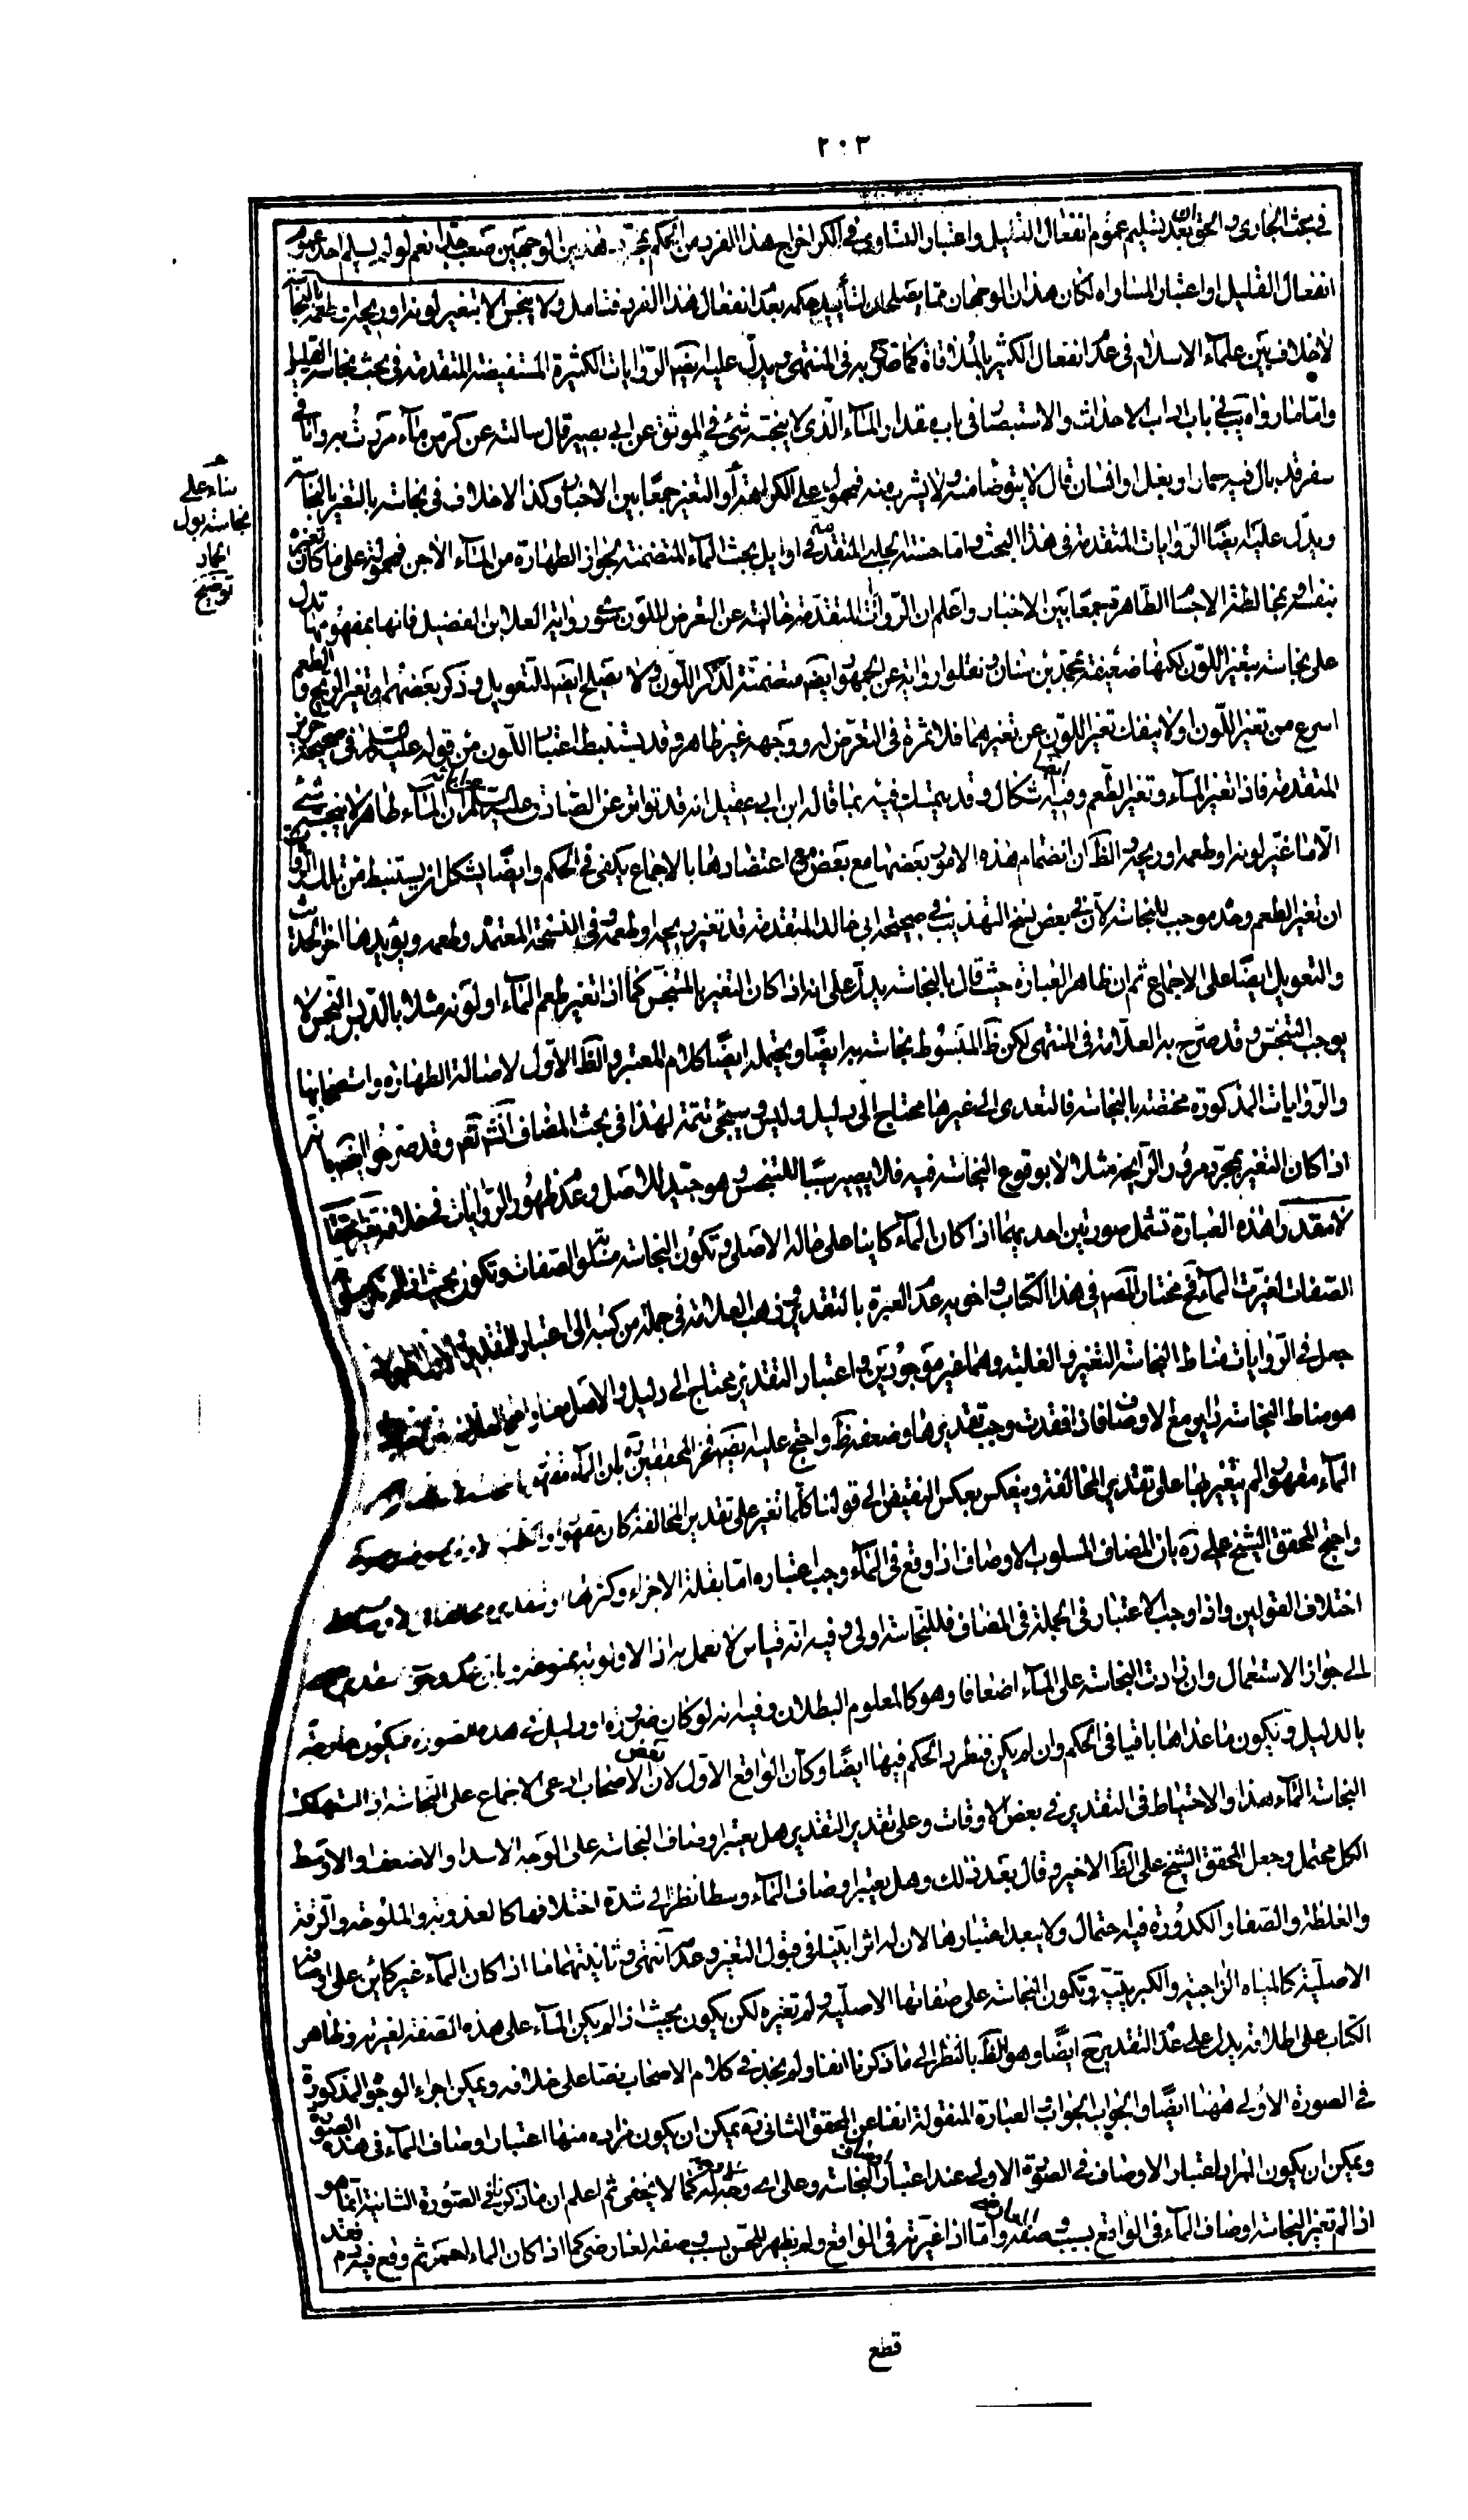 ٢٠٣
في بحث الجاري والحق ان بعد تسليم عموم انفعال القليل واعتبار التساوي في الكر اخراج هذا الفرد من الحكم بمجرد هذين الوجهين صعب جدا نعم لو لم يسلم احد عموم
انفعال القليل او اعتبار المساواه لكان هذان الوجهان مما يصلحان لتأييد حكمه بعد انفعال هذا الفرد فتامل ولا ينجس الا بتغير لونه او ريحه او طعمه بالنجاسة
لا خلاف بين علماء الاسلام في عدم انفعال الكثير بالملاقاة كما صرح به في المنتهى ويدل عليه ايضا الروايات الكثيرة المستفيضة المتقدمة في بحث نجاسة القليل
واما ما رواه يب في باب اداب الاحداث والاستبصار في باب مقدار الماء الذي لا ينجسه شئ في الموثق عن ابي بصير قال سالته عن كر من ماء مررت به وانا في
سفر قد بال فيه حمار او بغل او انسان قال لا يتوضا منه ولا يشرب منه فمحمول على الكراهة او التغير جمعا بين الاخبار وكذا لا خلاف في نجاسته بالتغير بالنجاسة
ويدل عليه ايضا الروايات المتقدمة في هذا البحث واما حسنة الحلبي المتقدمة في اوايل بحث الماء المتضمنة لجواز الطهارة من الماء الاجن فمحمولة على ما كان تغيره
بنفسه او بمخالطة الاجسام الطاهرة جمعا بين الاخبار واعلم ان الروايات المتقدمة خالية عن التعرض للون سوى رواية العلا بن الفضيل فانها بمفهومها تدل
على نجاسته بتغير اللون لكنها ضعيفة بمحمد بن سنان ونقلوا رواية عن الجمهور ايضا متضمنة لذكر اللون ولا يصلح ايضا للتعويل وذكر بعضهم ان تغير الريح والطعم
اسرع من تغير اللون او لا ينفك تغير اللون عن تغيرهما فلا ثمرة في التعرض له ووجهه غير ظاهر وقد يستنبط اعتبار اللون من قوله عليه السلم في صحيحة حريز
المتقدمة فاذا تغير الماء وتغير الطعم وفيه ايضا اشكال وقد يتمسك فيه بما قاله ابن ابي عقيل انه قد تواتر عن الصادق عليه السلم ان الماء طاهر لا ينجسه شئ
الا ما غير لونه او طعمه او ريحه والظ ان انضمام هذه الامور بعضها مع بعض مع اعتضادها بالاجماع يكفي في الحكم وايضا يشكل ان يستنبط من تلك الروايات
ان تغير الطعم وحده موجب للنجاسة لان في بعض نسخ التهذيب في صحيحة ابي خالد المتقدمة قد تغير ريحه او طعمه وفي النسخة المعتمدة وطعمه ويؤيدها اخر الحديث
والتعويل ايضا على الاجماع ثم ان ظاهر العبارة حيث قال بالنجاسة يدل على انه اذا كان التغير بالمتنجس كما اذا تغير طعم الماء او لونه مثلا بالدبس النجس لا
يوجب التنجس وقد صرح به العلامة في المنتهى لكن ظ المبسوط نجاسته به ايضا ويحتمله ايضا كلام المعتبر والظ الاول لاصالة الطهارة واستصحابها
والروايات المذكورة مختصة بالنجاسة فالتعدي الى غيرها محتاج الى دليل وليس وسيجئ تتمة لهذا في بحث المضاف انشاء الله تعم وقد صرحوا ايضا بانه
اذا كان التغير بمجرد مرور الرايحة مثلا لا بوقوع النجاسة فيه فلا يصير سببا للتنجس وهو جيد للاصل وعدم ظهور الروايات في خلافه تغيرا محققا
لا مقدرا هذه العبارة تشمل صورتين احديهما اذا كان الماء كاينا على حاله الاصلي وتكون النجاسة مسلوبة الصفات وتكون بحيث لو لم تكن مسلوبة
الصفات لغيرت الماء فمختار المص في هذا الكتاب واخويه عدم العبرة بالتقدير وذهب العلامة في جملة من كتبه الى اعتبار التقدير
جعل في الروايات مناط النجاسة التغير والغلبة وهما غير موجودين واعتبار التقدير محتاج الى دليل والاصل
هو مناط النجاسة داير مع الاوصاف فاذا فقدت وجب تقديرها وضعفه ظ واحتج عليه ايضا فخر المحققين ره بان الماء مقهور
الماء مقهورا لم يتغير بها على تقدير المخالفة وينعكس بعكس النقيض الى قولنا كلما تغير على تقدير المخالفة كان مقهورا
واحتج المحقق الشيخ على ره بان المضاف المسلوب الاوصاف اذا وقع في الماء وجب اعتباره اما بقلة الاجزاء وكثرتها او بتقديره
اختلاف القولين واذا وجب الاعتبار في الجملة في المضاف فللنجاسة اولى وفيه انه قياس لا نعمل به اذ الاولوية ممنوعة
الى جواز الاستعمال وان زادت النجاسة على الماء اضعافا وهو كالمعلوم البطلان وفيه انه لو كان ضرورة او دليل في هذه الصورة فيكون خارجة
بالدليل ويكون ما عداها باقيا في الحكم وان لم يكن فنطرد الحكم فيها ايضا وكان الواقع الاول لان بعض الاصحاب ادعى الاجماع على النجاسة اذا استهلكت
النجاسة الماء هذا والاحتياط في التقدير في بعض الاوقات وعلى تقدير التقدير هل يعتبر اوصاف النجاسة على الوجه الاشد او الاضعف او الاوسط
الكل محتمل وجعل المحقق الشيخ على الظ الاخير وقال بعد ذلك وهل يعتبر اوصاف الماء وسطا نظرا الى شدة اختلافها كالعذوبة والملوحة والرقة
والغلظة والصفا والكدورة فيه احتمال ولا يبعد اعتبارها لان له اثرا بينا في قبول التغير وعدمه انتهى وثانيتهما ما اذا كان الماء غير كائن على اوصافه
الاصلية كالمياه الزاجية والكبريتية وتكون النجاسة على صفاتها الاصلية ولم تغيره لكن يكون بحيث اذا لم يكن الماء على هذه الصفة لغيرته وظاهر
الكتاب على اطلاقه يدل على عدم التقدير ح ايضا وهو الظ بالنظر الى ما ذكرنا انفا ولم نجد في كلام الاصحاب نصا على خلافه ويمكن اجراء الوجوه المذكورة
في الصورة الاولى ههنا ايضا والجواب الجواب والعبارة المنقولة انفا عن المحقق الثاني ره يمكن ان يكون مراده منها اعتبار اوصاف الماء في هذه الصورة
ويمكن ان يكون المراد اعتبار الاوصاف في الصورة الاولى عند اعتبار اوصاف النجاسة وعلى اي وجه كما لا يخفى ثم اعلم ان ما ذكرنا في الصورة الثانية انما هو
اذا لم تغير النجاسة اوصاف الماء في الواقع بسبب صفة واما اذا غيرته في الواقع ولم يظهر للحس بسبب صفة العارضى كما اذا كان الماء احمر ثم وقع فيه دم فعند
قطع
بناء على
نجاسة بول
الحمار
توضيح